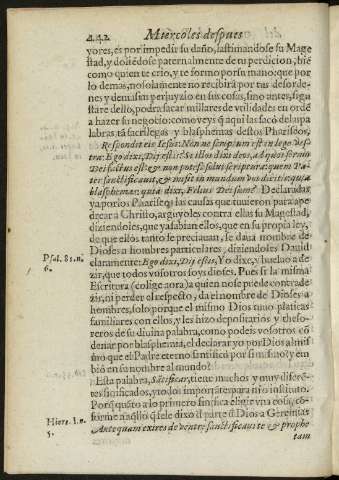 442 Miercoles despues
yores, es por impedir su daño, lastimandose su Mage
stad, y doliẽdose paternalmente de tu perdicion, biẽ
como quien te crio, y te formo por su mano: que por
lo demas, no solamente no recibirà por tus desorde-
nes y demasias perjuyzio en sus cosas, sino antes, si gu
stare dello, podra sacar millares de vtilidades en ordẽ
a hazer su negocio: como veys q̃ aqui las sacò de las pa
labras tã sacrilegas y blasphemas destos Phariseos.
Respondit eis Iesus: Nõne scriptum est in lege ves
tra: Ego dixi, Dij estis? Si illos dixit deos, ad quos sermo
Dei factus est, & non potest solui scriptura: quem Pa-
ter sanctificauit, & misit in mundum vos dicitis: quia
blasphemas: quia dixi, Filius Dei sum? Declaradas
ya por los Phariseos las causas que tuuieron para ape
drear a Christo, arguyòles contra ellas su Magestad,
diziendoles, que ya sabian ellos, que en su propia ley,
de que ellos tanto se preciauan, se daua nombre de
Dioses a hombres particulares, diziendoles Dauid
claramente: Ego dixi, Dij estis, Yo dixe, y bueluo a de
Psal. 81. n.
6.
zir, que todos vosotros soys dioses. Pues si la misma
Escritura (colige aora) a quien no se puede contrade
zir, ni perder el respecto, da el nombre de Dioses a
hombres, solo porque el mismo Dios tuuo platicas
familiares con ellos, y les hizo depositarios y theso-
reros de su diuina palabra, como podeis vosotros cõ
denar por blasphemia, el declarar yo por Dios al mis
mo que el Padre eterno santificò por si mismo? y em
biò en su nombre al mundo?
Esta palabra, Sãtificar, tiene muchos y muy diferẽ-
tes significados, y todos importãtes para nr̃o instituto.
Porq̃ quãto a lo primero significa eligir vna cosa, cõ-
forme a aq̃llo q̃ se le dixo d̃ parte d̃ Dios a Geremias
Hiere. 1. n.
5.
Antequam exires de ventre sanctificaui te & prophe
tam